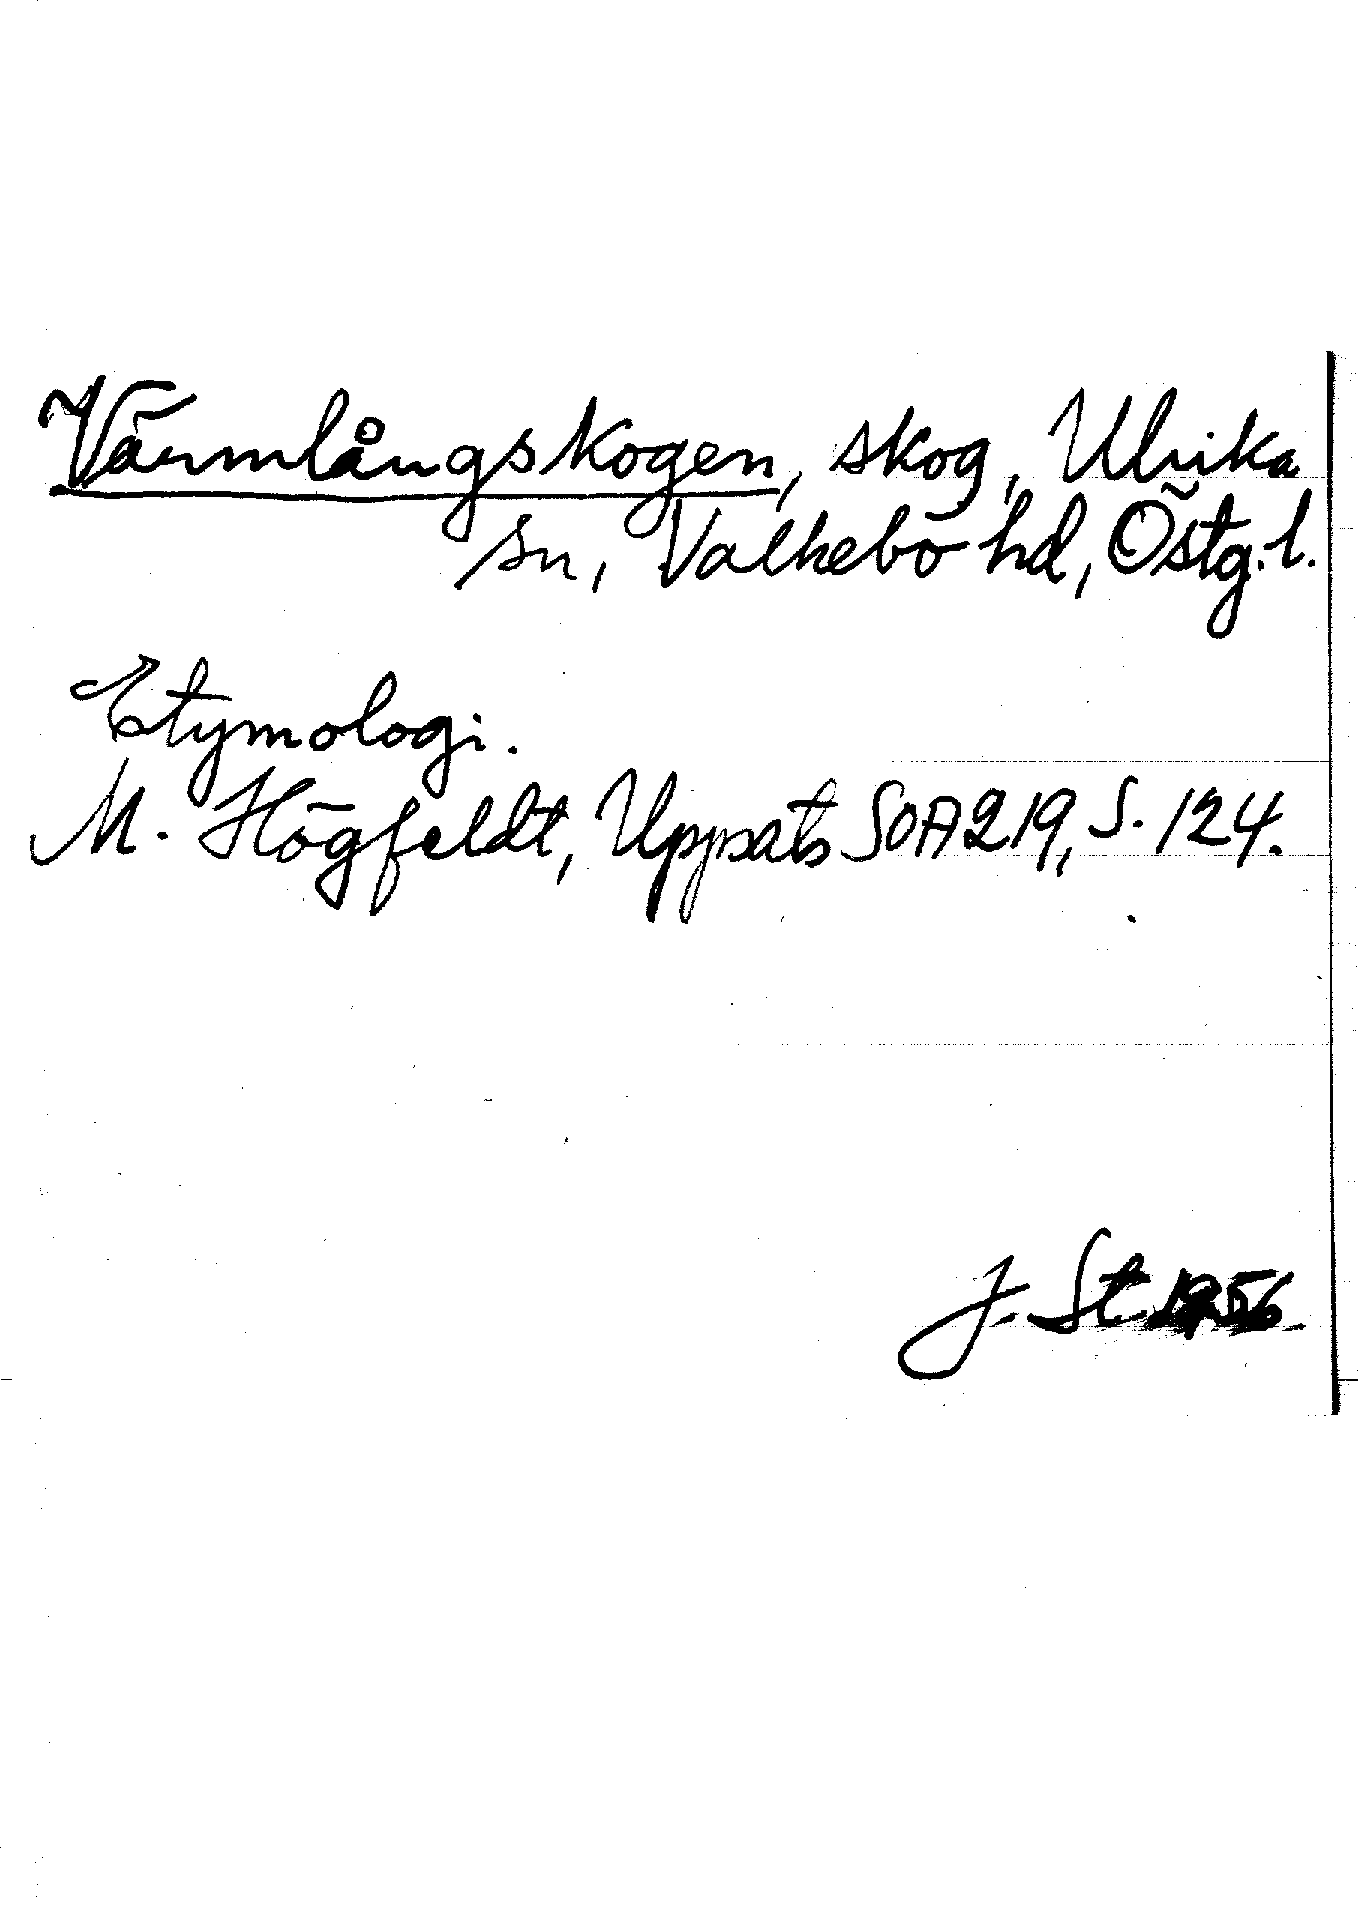 Värmlångskogen, skog, Ulrika
sn, Valkebo hd, Östg.l.
Etymologi.
M. Högfeldt, Uppsats SOA 219, S. 124.
J. St. 1956